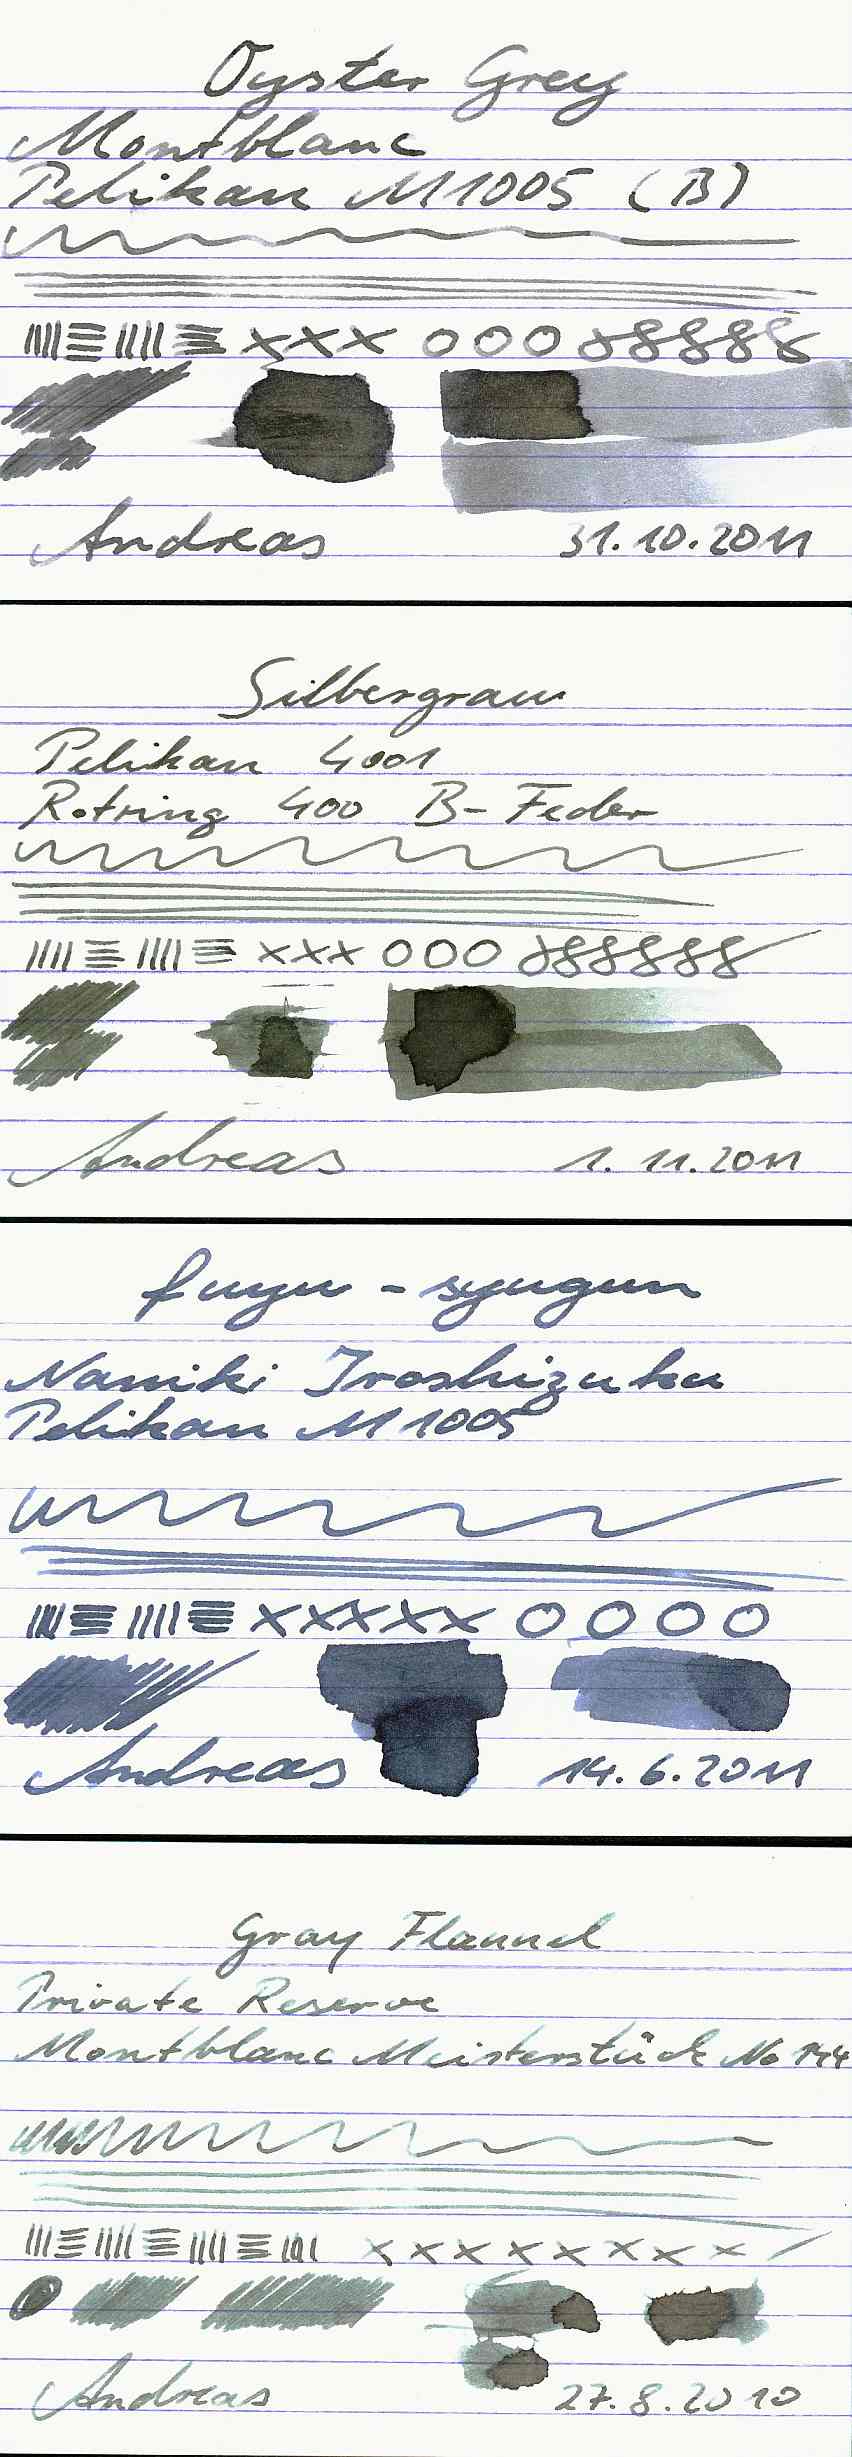 Oyster Grey
Montblanc
Pelikan M1005 (B)
Andreas 31.10.2011
Silbergrau
Pelikan 4001
Rotring 400 B-Feder
Andreas 1.11.2011
fuyu - syogun
Namiki Iroshizuku
Pelikan M1005
Andreas 14.6.2011
Gray Flannel
Private Reserve
Montblanc Meisterstück No 144
Andreas 27.8.2010